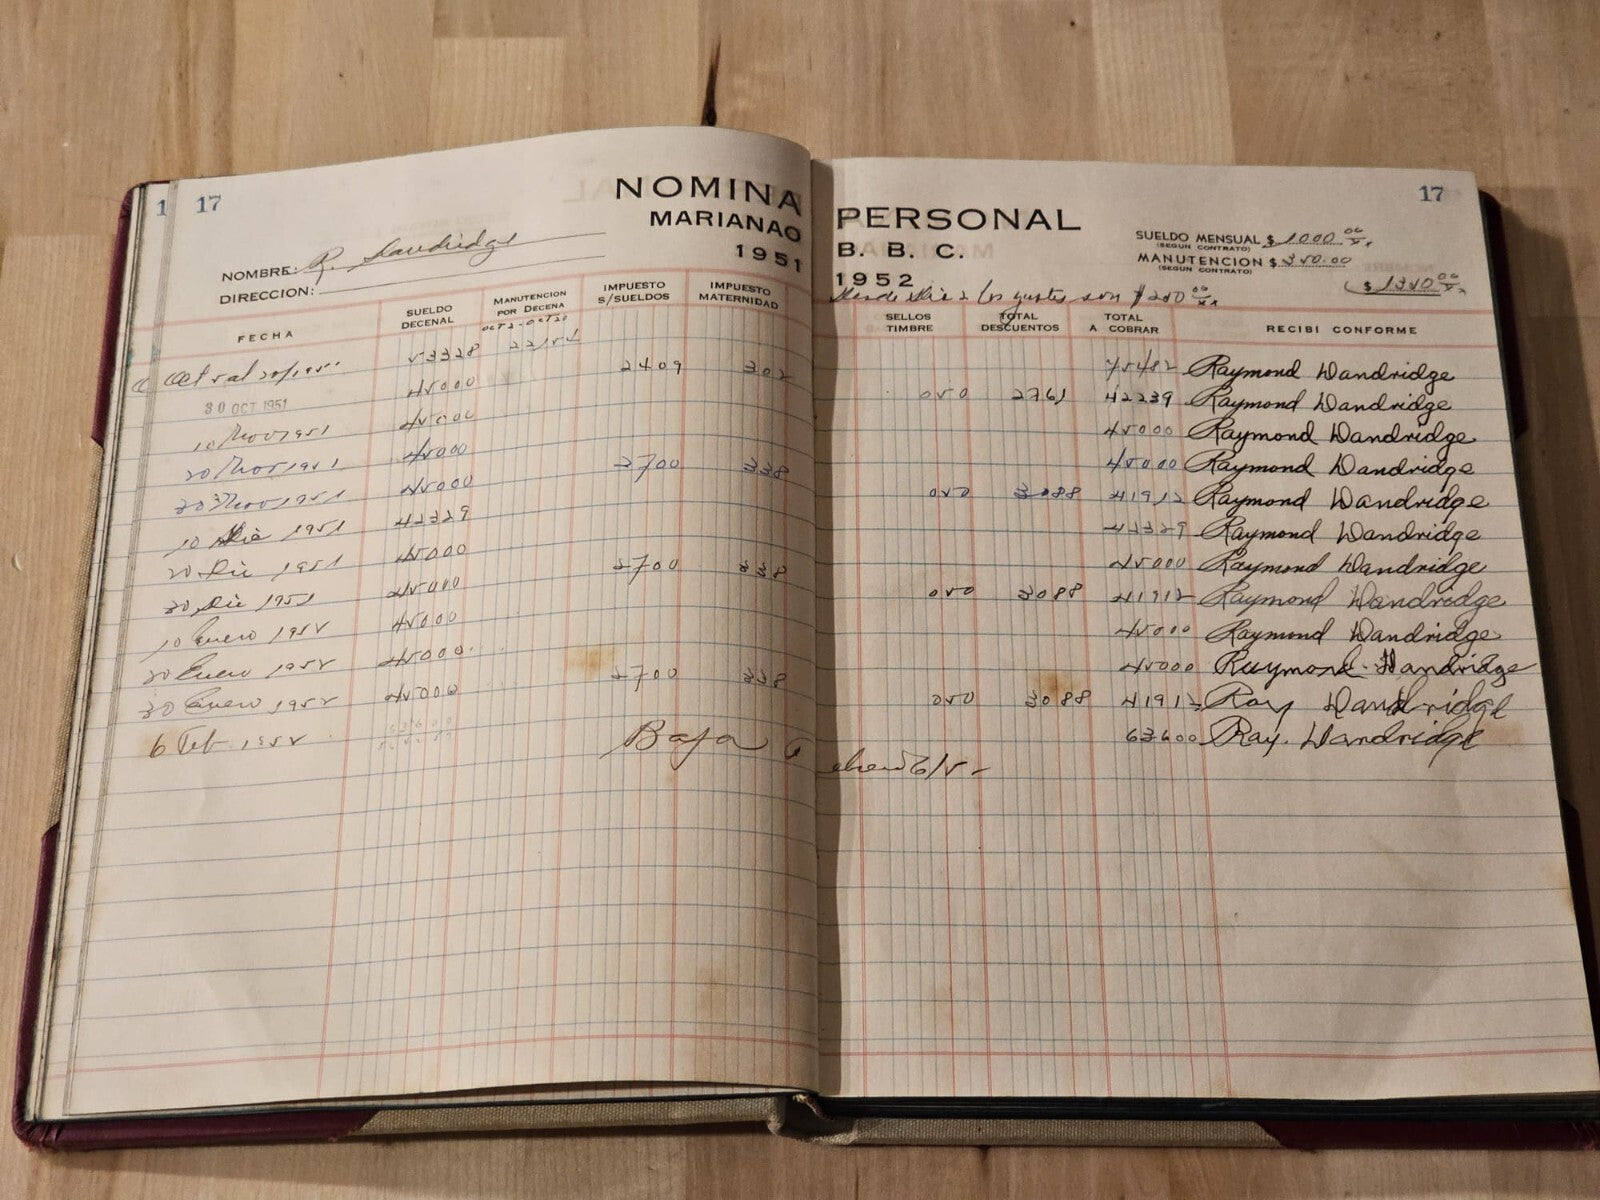 1 17
NOMINA PERSONAL 17
MARIANAO B. B. C.
1951 1952
SUELDO MENSUAL $ 1000 00/xx
(SEGUN CONTRATO)
MANUTENCION $ 350.00
(SEGUN CONTRATO)
NOMBRE: R. Dandridge
DIRECCION:
son $
FECHA SUELDO DECENAL MANUTENCION POR DECENA IMPUESTO S/SUELDOS IMPUESTO MATERNIDAD SELLOS TIMBRE TOTAL DESCUENTOS TOTAL A COBRAR RECIBI CONFORME
Oct 5 al 20/1951 53328 2409 302 75482 Raymond Dandridge
30 OCT 1951 45000 050 2761 42239 Raymond Dandridge
10 Nov 1951 45000 45000 Raymond Dandridge
20 Nov 1951 45000 2700 338 45000 Raymond Dandridge
30 Nov 1951 45000 050 3088 41912 Raymond Dandridge
10 Dic 1951 42329 42329 Raymond Dandridge
20 Dic 1951 45000 2700 338 45000 Raymond Dandridge
30 Dic 1951 45000 050 3088 41912 Raymond Dandridge
10 Enero 1952 45000 45000 Raymond Dandridge
20 Enero 1952 45000 2700 338 45000 Raymond Dandridge
30 Enero 1952 45000 050 3088 41912 Ray Dandridge
6 Feb 1952 Baja 63600 Ray. Dandridge